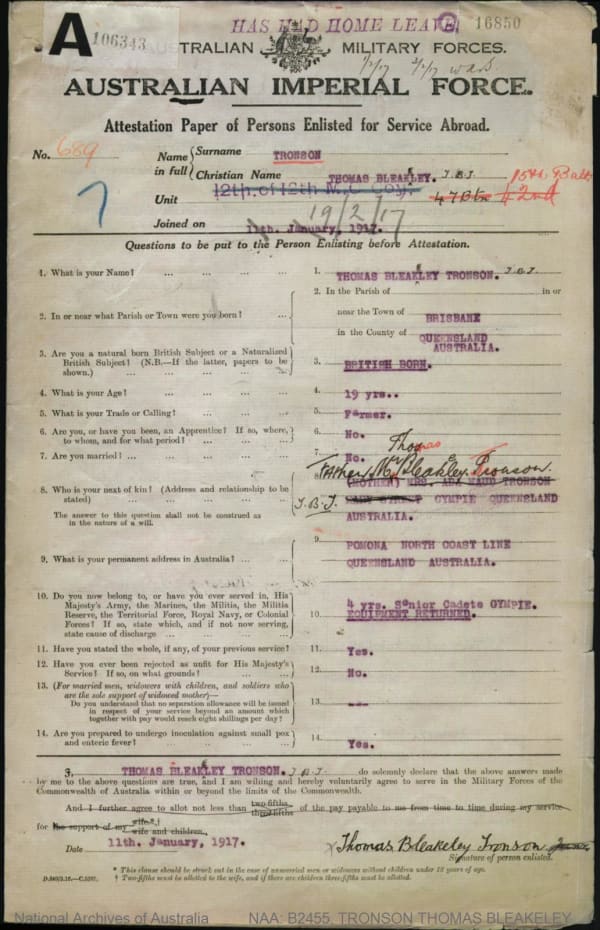 HAS HAD HOME LEAVE
16850
A
106343
AUSTRALIAN MILITARY FORCES.
AUSTRALIAN IMPERIAL FORCE.
Attestation Paper of Persons Enlisted for Service Abroad.
No. 689
Name in full
Surname TRONSON
Christian Name THOMAS BLEAKLEY. T.B.T.
Unit 12th. of 12th M.G Coy. 47 Btn 42nd
19/2/17
Joined on 11th. January, 1917.
7
Questions to be put to the Person Enlisting before Attestation.
1. What is your Name? ... ... ... ... 1. THOMAS BLEAKLEY TRONSON. T.B.T.
2. In or near what Parish or Town were you born? ... 2. In the Parish of in or
near the Town of BRISBANE
in the County of QUEENSLAND
AUSTRALIA.
3. Are you a natural born British Subject or a Naturalized
British Subject? (N.B.—If the latter, papers to be
shown.) ... ... ... ... 3. BRITISH BORN.
4. What is your Age? ... ... ... ... 4. 19 yrs..
5. What is your Trade or Calling? ... ... ... 5. Farmer.
6. Are you, or have you been, an Apprentice? If so, where,
to whom, and for what period? ... ... ... 6. No.
7. Are you married? ... ... ... ... 7. No.
Thomas
Father Mr Bleakley Tronson.
8. Who is your next of kin? (Address and relationship to be
stated) ... ... ... ... 8. (MOTHER) MRS. ADA MAUD TRONSON
T.B.T. STREET GYMPIE QUEENSLAND
AUSTRALIA.
The answer to this question shall not be construed as
in the nature of a will.
9. What is your permanent address in Australia? ... ... 9. POMONA NORTH COAST LINE
QUEENSLAND AUSTRALIA.
10. Do you now belong to, or have you ever served in, His
Majesty's Army, the Marines, the Militia, the Militia
Reserve, the Territorial Force, Royal Navy, or Colonial
Forces? If so, state which, and if not now serving,
state cause of discharge ... ... ... 10. 4 yrs. Senior Cadets GYMPIE.
EQUIPMENT RETURNED.
11. Have you stated the whole, if any, of your previous service? 11. Yes.
12. Have you ever been rejected as unfit for His Majesty's
Service? If so, on what grounds? ... ... 12. No.
13. (For married men, widowers with children, and soldiers who
are the sole support of widowed mother)—
Do you understand that no separation allowance will be issued
in respect of your service beyond an amount which
together with pay would reach eight shillings per day? 13. ---
14. Are you prepared to undergo inoculation against small pox
and enteric fever? ... ... ... ... 14. Yes.
I, THOMAS BLEAKLEY TRONSON. T.B.T. do solemnly declare that the above answers made
by me to the above questions are true, and I am willing and hereby voluntarily agree to serve in the Military Forces of the
Commonwealth of Australia within or beyond the limits of the Commonwealth.
And I further agree to allot not less than two-fifths three-fifths of the pay payable to me from time to time during my service
for the support of my wife.* † wife and children.
Date 11th. January, 1917. Thomas Bleakeley Tronson
Signature of person enlisted.
* This clause should be struck out in the case of unmarried men or widowers without children under 18 years of age.
† Two-fifths must be allotted to the wife, and if there are children three-fifths must be allotted.
National Archives of Australia NAA: B2455, TRONSON THOMAS BLEAKELEY